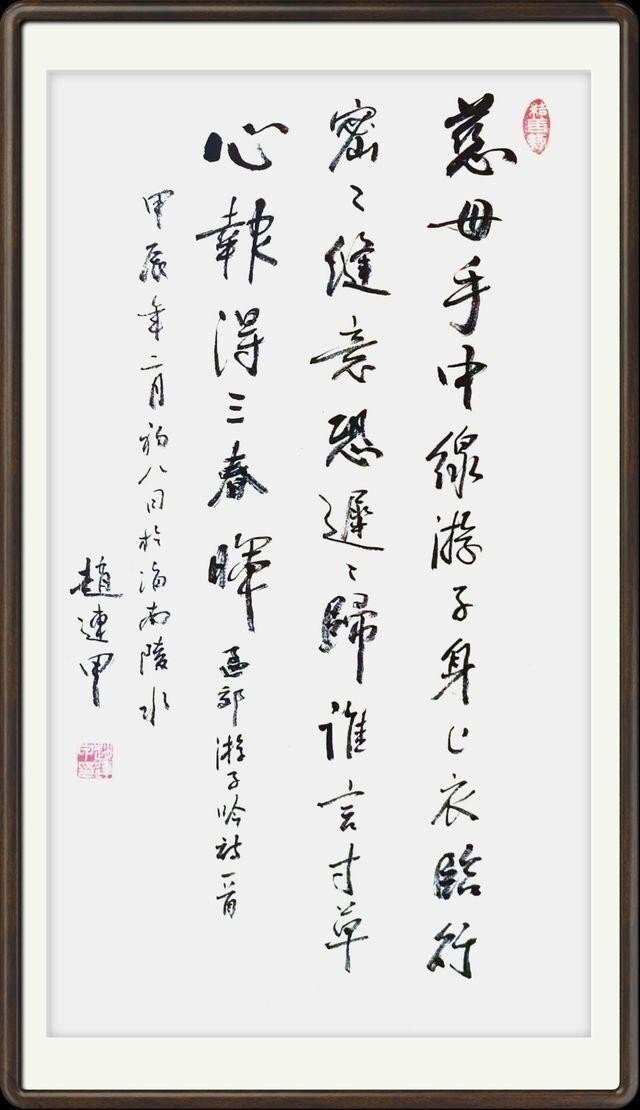 慈母手中線游子身上衣臨行
密々縫意恐遲々歸誰言寸草
心報得三春暉 孟郊游子吟詩一首
甲辰年二月初八日於海南陵水
趙連甲